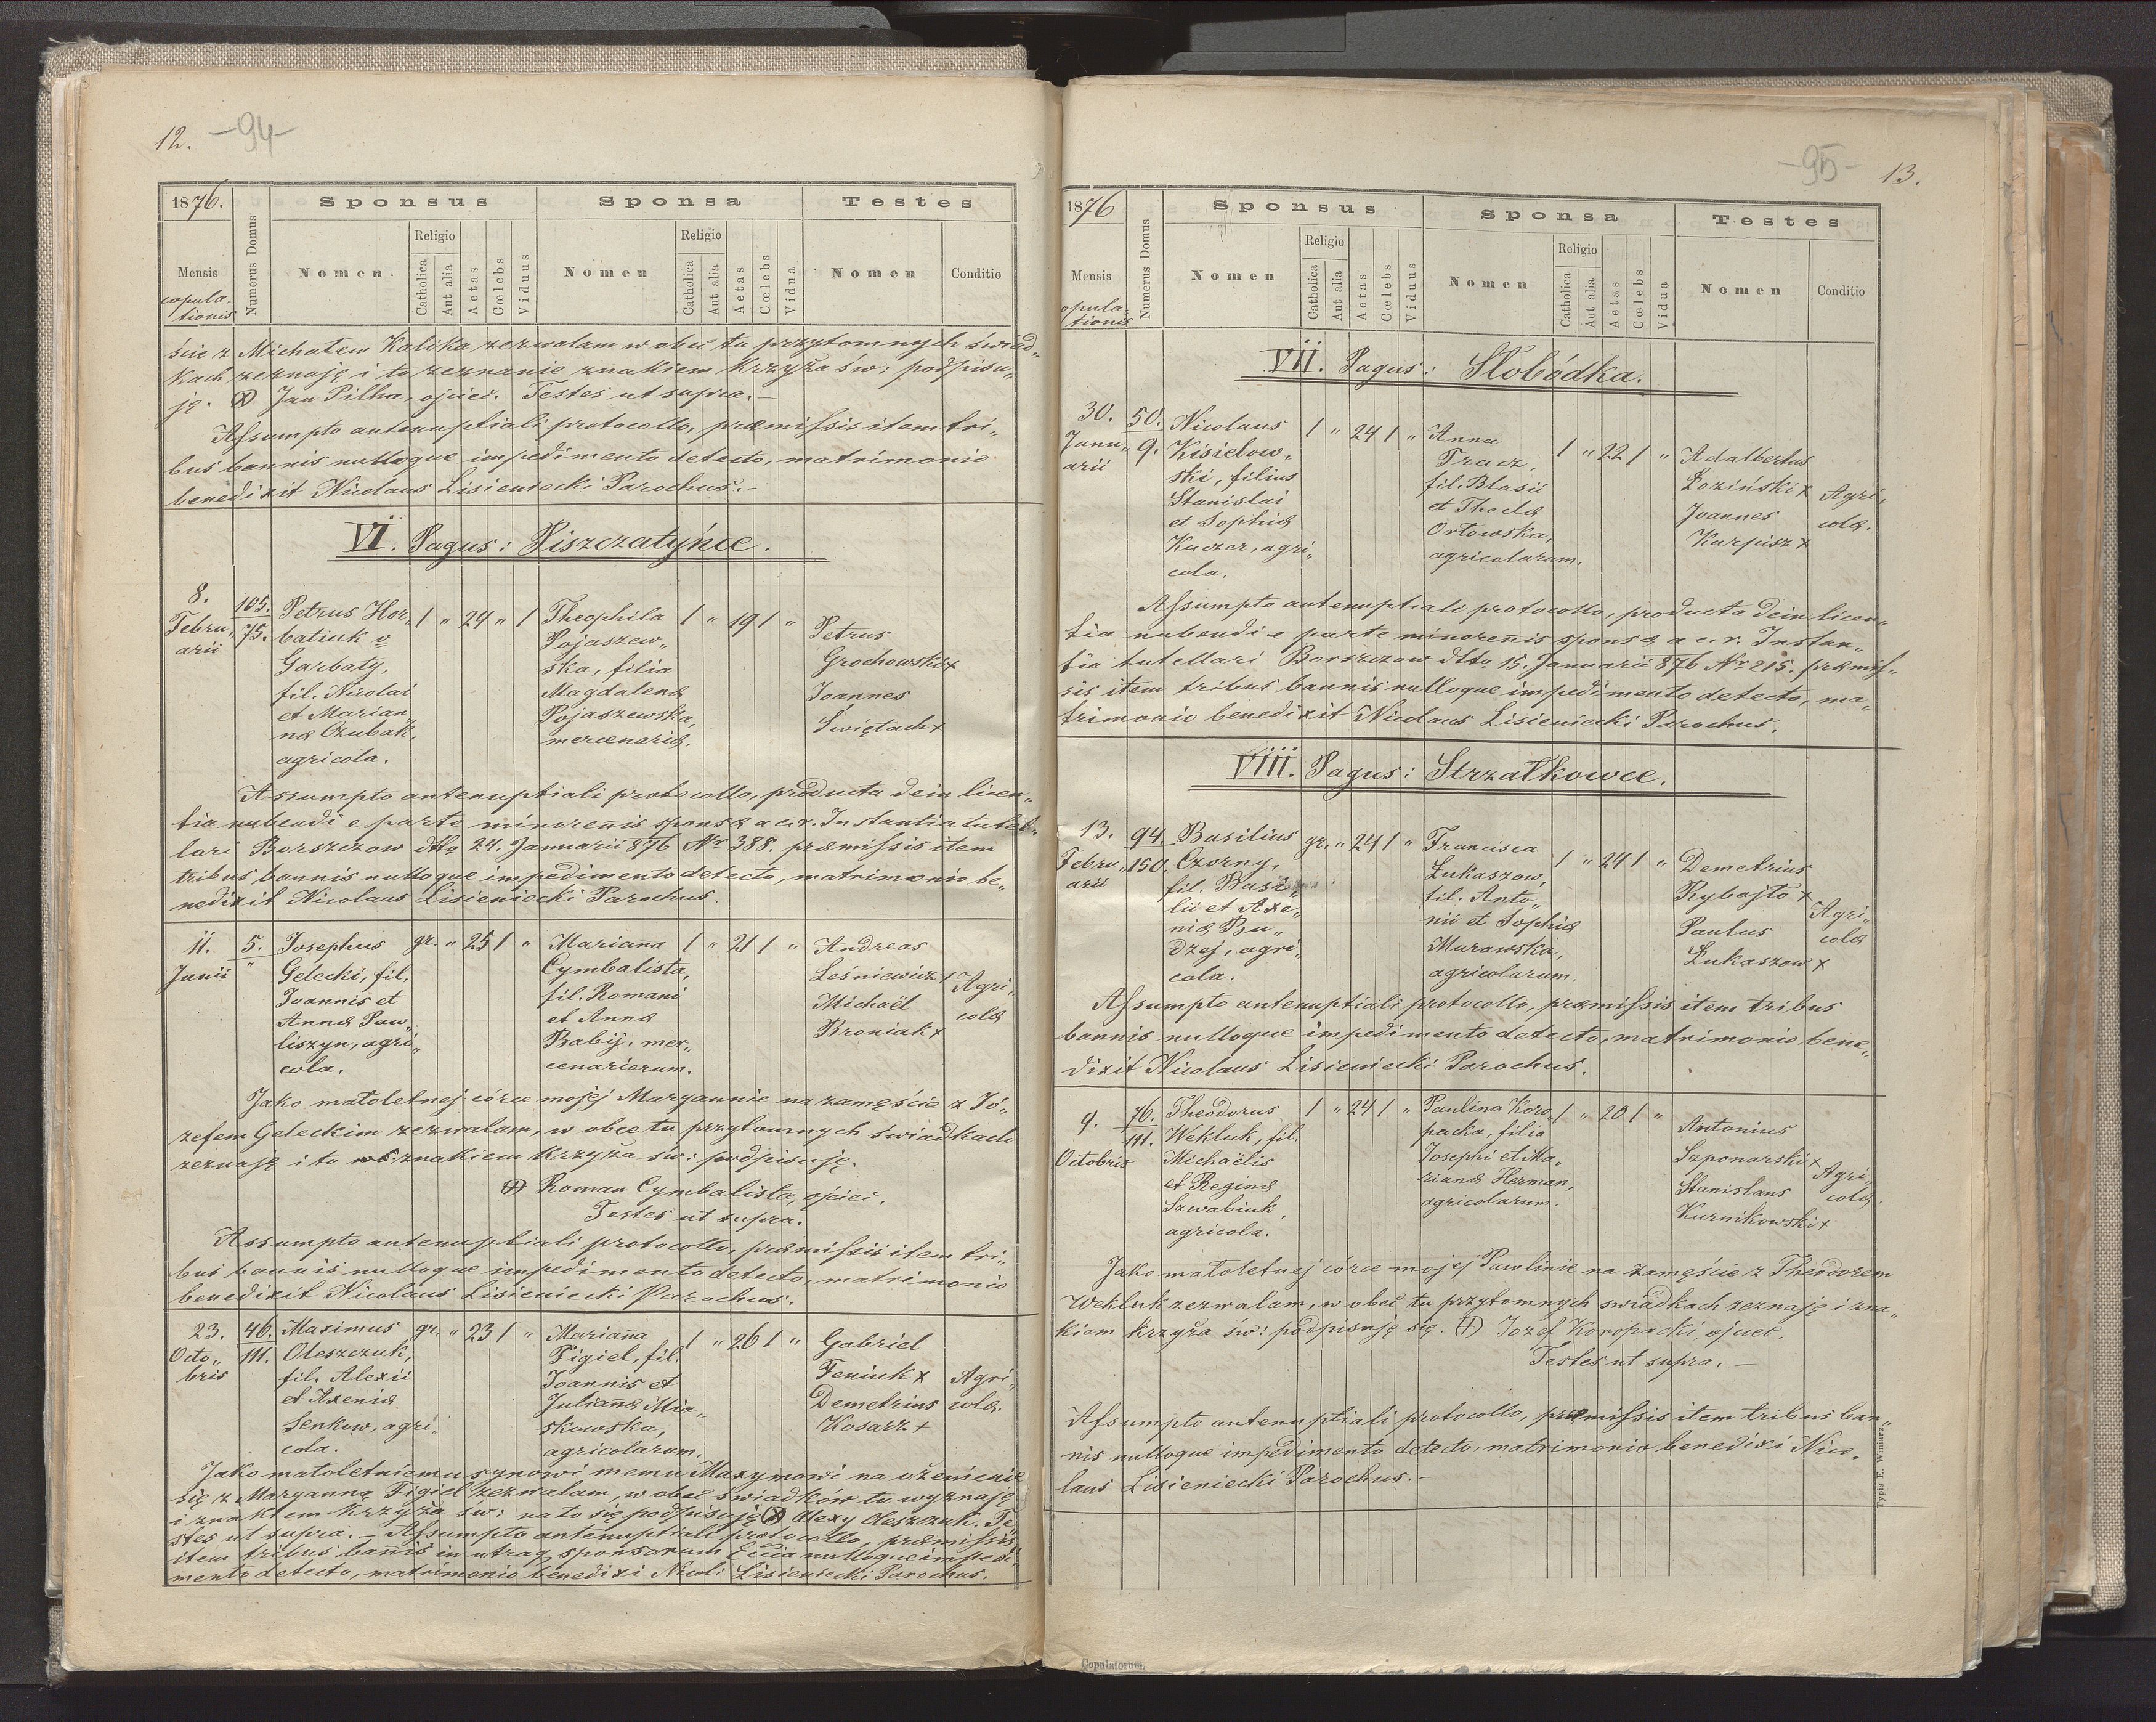 12. -94-
1876.
Mensis
copula-
tionis
Numerus Domus
Sponsus
Sponsa
Testes
Nomen
Religio
Catholica
Aut alia
Aetas
Cœlebs
Viduus
Nomen
Religio
Catholica
Aut alia
Aetas
Cœlebs
Vidua
Nomen
Conditio
ście z Michałem Kalika zezwalam w obec tu przytomnych świad„
kach zeznaję i to zeznanie znakiem Krzyża św: podpisu„
ję. (X) Jan Pilha, ojciec. Testes ut supra.—
Assumpto antenuptiali protocollo, præmissis item tri„
bus bannis nulloque impedimento detecto, matrimonio
benedixit Nicolaus Lisieniecki Parochus.—
VI. Pagus: Piszczatyńce.
8.
Febru„
arii
105.
75.
Petrus Hor„
batiuk v
Garbaty,
fil. Nicolai
et Marian„
næ Czubak,
agricola.
1 " 24 " 1
Theophila
Pojaszew„
ska, filia
Magdalenæ
Pojaszewska,
mercenariæ.
1 " 19 1 "
Petrus
Grochowski+
Joannes
Świętach+
Assumpto antenuptiali protocollo, producta dein licen„
tia nubendi e parte minorenis sponsæ a c.r. Instantia tutel„
lari Borszczow dtto 24. Januarii 876 Nr 388. præmissis item
tribus bannis nulloque impedimento detecto, matrimonio be„
nedixit Nicolaus Lisieniecki Parochus.
11.
Junii
5.
"
Josephus
Gelecki, fil.
Joannis et
Annæ Paw„
liszyn, agri„
cola.
gr. " 25 1 "
Marianna
Cymbalista,
fil. Romani
et Annæ
Babij, mer„
cenariorum.
1 " 21 1 "
Andreas
Leśniewicz+
Michaël
Broniak+
Agri„
colæ
Jako małoletnej córce mojej Maryannie na zamęście z Jó„
zefem Geleckim zezwalam, w obec tu przytomnych świadkach
zeznaję i to znakiem Krzyża św: podpisuję.
(+) Roman Cymbalista, ojciec.
Testes ut supra.
Assumpto antenuptiali protocollo, præmissis item tri„
bus bannis nulloque impedimento detecto, matrimonio
benedixit Nicolaus Lisieniecki Parochus.
23.
Octo„
bris
46.
111.
Maximus
Oleszczuk,
fil. Alexii
et Axeniæ
Senkow, agri„
cola.
gr. " 23 1 "
Marianna
Figiel, fil.
Joannis et
Juliannæ Mia„
skowska,
agricolarum.
1 " 26 1 "
Gabriel
Feniuk+
Demetrius
Kosarz+
Agri„
colæ.
Jako małoletniemu synowi memu Maxymowi na ożenienie
się z Maryanną Figiel zezwalam, w obec świadków tu wyznaję
i znakiem Krzyża św: na to się podpisuję (X) Olexy Oleszczuk. Te„
stes ut supra.— Assumpto antenuptiali protocollo, præmissis
item tribus bannis in utraq sponsorum Ecclia nulloque impedi„
mento detecto, matrimonio benedixi Nicol: Lisieniecki Parochus.
-95- 13.
1876
Mensis
opula-
tionis
Numerus Domus
Sponsus
Sponsa
Testes
Nomen
Religio
Catholica
Aut alia
Aetas
Cœlebs
Viduus
Nomen
Religio
Catholica
Aut alia
Aetas
Cœlebs
Vidua
Nomen
Conditio
VII. Pagus: Słobódka.
30.
Janu„
arii
50.
9.
Nicolaus
Kisielow„
ski, filius
Stanislai
et Sophiæ
Kuczer, agri„
cola.
1 " 24 1 "
Anna
Tracz,
fil. Blasii
et Theclæ
Orłowska,
agricolarum.
1 " 22 1 "
Adalbertus
Łoziński+
Joannes
Kurpisz+
Agri„
colæ.
Assumpto antenuptiali protocollo, producta dein licen„
tia nubendi e parte minorenis sponsæ a c.r. Instan„
tia tutellari Borszczow dtto 15. Januarii 876 Nr 215. præmis„
sis item tribus bannis nulloque impedimento detecto, ma„
trimonio benedixit Nicolaus Lisieniecki Parochus.
VIII. Pagus: Strzałkowce.
13.
Febru„
arii
94.
150.
Basilius
Czorny,
fil. Basi„
lii et Axe„
niæ Bu„
dzej, agri„
cola.
gr. " 24 1 "
Francisca
Łukaszow,
fil. Anto„
nii et Sophiæ
Murawska,
agricolarum.
1 " 24 1 "
Demetrius
Rybajło+
Paulus
Łukaszow+
Agri„
colæ
Assumpto antenuptiali protocollo, præmissis item tribus
bannis nulloque impedimento detecto, matrimonio bene„
dixit Nicolaus Lisieniecki Parochus.
9.
Octobris
76.
111.
Theodorus
Wekluk, fil.
Michaëlis
et Reginæ
Szwabiuk,
agricola.
1 " 24 1 "
Paulina Koro„
packa, filia
Josephi et Ma„
riannæ Herman,
agricolarum.
1 " 20 1 "
Antonius
Szponarski+
Stanislaus
Kurnikowski+
Agri„
colæ.
Jako małoletnej córce mojej Pawlinie na zamęście z Theodorem
Wekluk zezwalam, w obec tu przytomnych świadkach zeznaję i zna„
kiem krzyża św: podpisuję się. (+) Jozef Koropacki, ojciec.
Testes ut supra.—
Assumpto antenuptiali protocollo, præmissis item tribus ban„
nis nulloque impedimento detecto, matrimonio benedixi Nico„
laus Lisieniecki Parochus.—
Typis E. Winiarz.
Copulatorum.